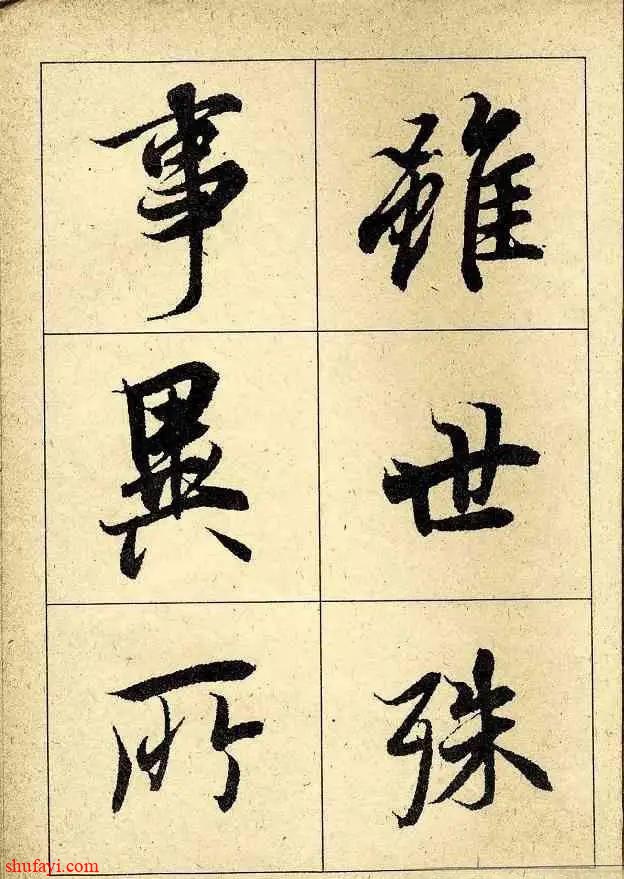 雖世殊
事異所
shufayi.com